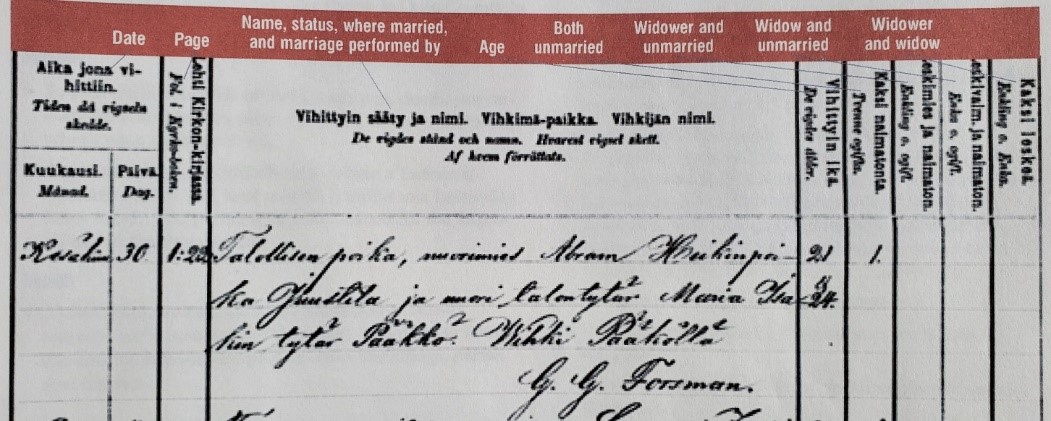 Date Page Name, status, where married, and marriage performed by Age Both unmarried Widower and unmarried Widow and unmarried Widower and widow
Aika jona vi-
hittiin.
Tiden då vigseln
skedde.
Kuukausi.
Månad.
Päivä
Dag.
Lehti Kirkon-kirjassa.
Fol. i Kyrko-boken.
Vihittyin sääty ja nimi. Vihkimä-paikka. Vihkijän nimi.
De vigdes stånd och namn. Hvarest vigsel skett.
Af hvem förrättats.
Vihittyin ikä.
De vigdes ålder.
Kaksi naimatonta.
Tvenne ogifta.
Leskimies ja naimaton.
Enkling o. ogift.
Leskivaim. ja naimaton.
Enka o. ogift.
Kaksi leskeä.
Enkling o. Enka.
Kesäkuu 30 1:22 Talollisen poika, nuorimies Abram Heikinpoi- 21 1.
ka Juustila ja nuori talontytär Maria Isa- 24.
kin tytär Pääkkö. Wihki Pääköllä
G. G. Forsman.